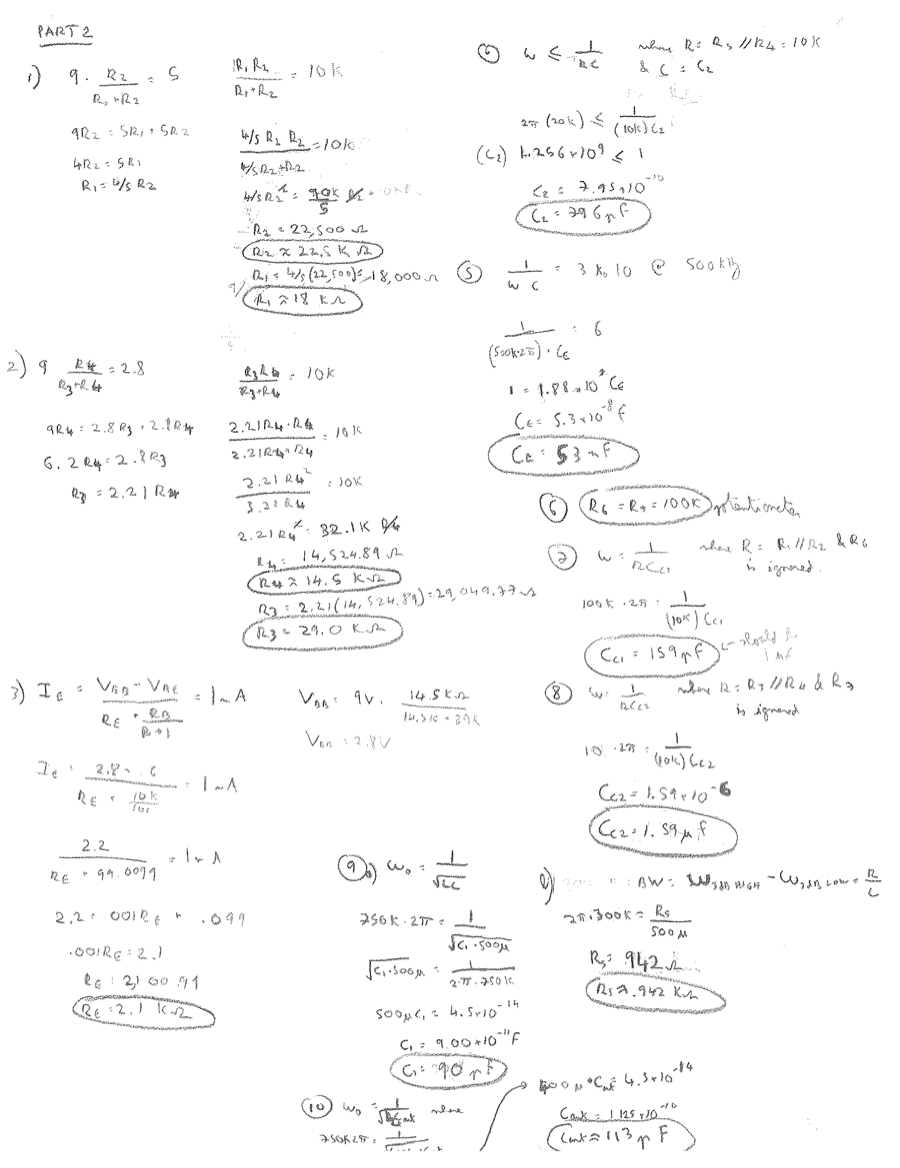 PART 2
1) 9 · R2 / (R1 + R2) = 5
9R2 = 5R1 + 5R2
4R2 = 5R1
R1 = 4/5 R2
R1 R2 / (R1 + R2) = 10K
4/5 R2 R2 / (4/5 R2 + R2) = 10K
4/5 R2² = 90K / 5
R2 = 22,500 Ω
R2 ≈ 22.5 K Ω
R1 = 4/5 (22,500) = 18,000 Ω
R1 ≈ 18 K Ω
2) 9 R4 / (R3 + R4) = 2.8
9R4 = 2.8 R3 + 2.8 R4
6.2 R4 = 2.8 R3
R3 = 2.21 R4
R3 R4 / (R3 + R4) = 10K
2.21 R4 · R4 / (2.21 R4 + R4) = 10K
2.21 R4² / 3.21 R4 = 10K
2.21 R4² = 32.1K R4
R4 = 14,524.89 Ω
R4 ≈ 14.5 K Ω
R3 = 2.21 (14,524.89) = 29,049.77 Ω
R3 = 29.0 K Ω
3) IE = (VBB - VBE) / (RE + RB / (β+1)) = 1mA
IE = (2.8 - .6) / (RE + 10K / 101) = 1mA
2.2 / (RE + 99.0099) = 1mA
2.2 = .001RE + .099
.001RE = 2.1
RE = 2,100.99
RE = 2.1 K Ω
VBB = 9V · 14.5KΩ / (14.5K + 29K)
VBB = 2.8V
ω ≤ 1 / RC where R = R3 // R4 = 10K
& C = C2
2π (20K) ≤ 1 / (10K) C2
(C2) 1.256 x 10⁹ ≤ 1
C2 = 7.95 x 10⁻¹⁰
C2 = 796 pF
5 1 / ω C = 3 to 10 @ 500 kHz
1 / (500K·2π) · CE = 6
1 = 1.88 x 10⁷ CE
CE = 5.3 x 10⁻⁸ F
CE = 53 nF
6 R6 = R7 = 100K potentiometer
7 ω = 1 / RCC1 where R = R1 // R2 & R6
is ignored.
100K · 2π = 1 / (10K) CC1
CC1 = 159 pF ← should be
1 nF
8 ω = 1 / RCC2 where R = R3 // R4 & R7
is ignored
10 · 2π = 1 / (10K) CC2
CC2 = 1.59 x 10⁻⁶
CC2 = 1.59 μF
9 a) ω0 = 1 / √LC
750K · 2π = 1 / √C1 · 500μ
√C1 · 500μ = 1 / 2π · 750K
500μC1 = 4.5 x 10⁻¹⁴
C1 = 9.00 x 10⁻¹¹ F
C1 = 90 pF
BW = ω3dB HIGH - ω3dB LOW = R / L
2π · 300K = R5 / 500μ
R5 = 942 Ω
R5 ≈ .942 KΩ
10 ω0 = where
750K2π =
4.5 x 10⁻¹⁴
Cant = 1.125 x 10⁻¹⁰
Cant ≈ 113 pF